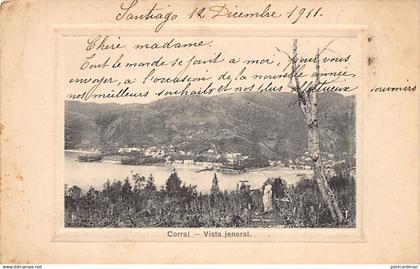 Santiago 12 Dicembre 1911.
Chère madame.
Tout le monde se joint a moi, pour vous
envoyer, a l'occasion de la nouvelle année,
nos meilleurs souhaits et nos plus affectueux souvenirs
Corral — Vista jeneral.